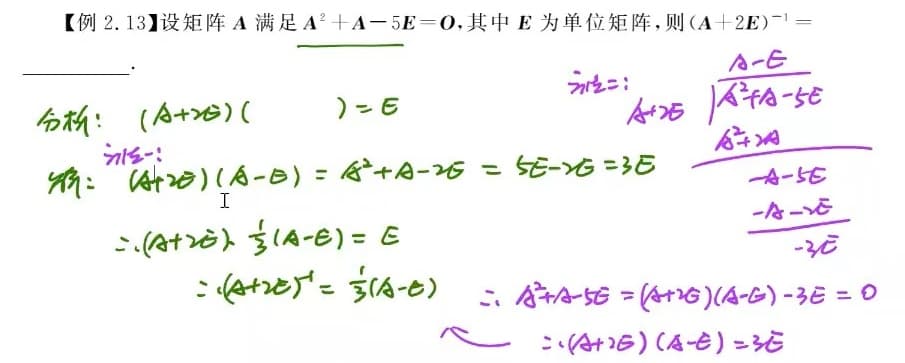 【例 2.13】设矩阵 A 满足 A²+A-5E=O,其中 E 为单位矩阵,则(A+2E)⁻¹=
________.
分析: (A+2E)(      )=E
方法一:
解: (A+2E)(A-E)=A²+A-2E=5E-2E=3E
∴(A+2E)·⅓(A-E)=E
∴(A+2E)⁻¹=⅓(A-E)
方法二:
A-E
A+2E A²+A-5E
A²+2A
-A-5E
-A-2E
-3E
∴ A²+A-5E=(A+2E)(A-E)-3E=0
∴(A+2E)(A-E)=3E